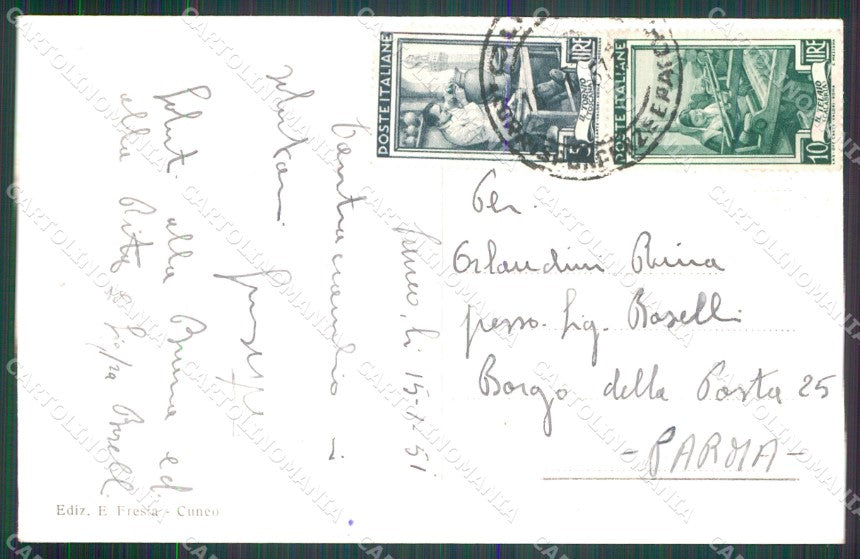 POSTE ITALIANE
LIRE
5
IL TORNIO
POSTE ITALIANE
LIRE
10
IL TELAIO
Cuneo, li 15-
51
Contraccambio i
saluti
Giuseppe
Saluti alla Bruna ed
alla Rita
Boselli
Gen.
Orlandini Rina
presso Sig. Boselli
Borgo della Posta 25
- PARMA -
Ediz. E Fresia - Cuneo
CARTOLINOMANIA